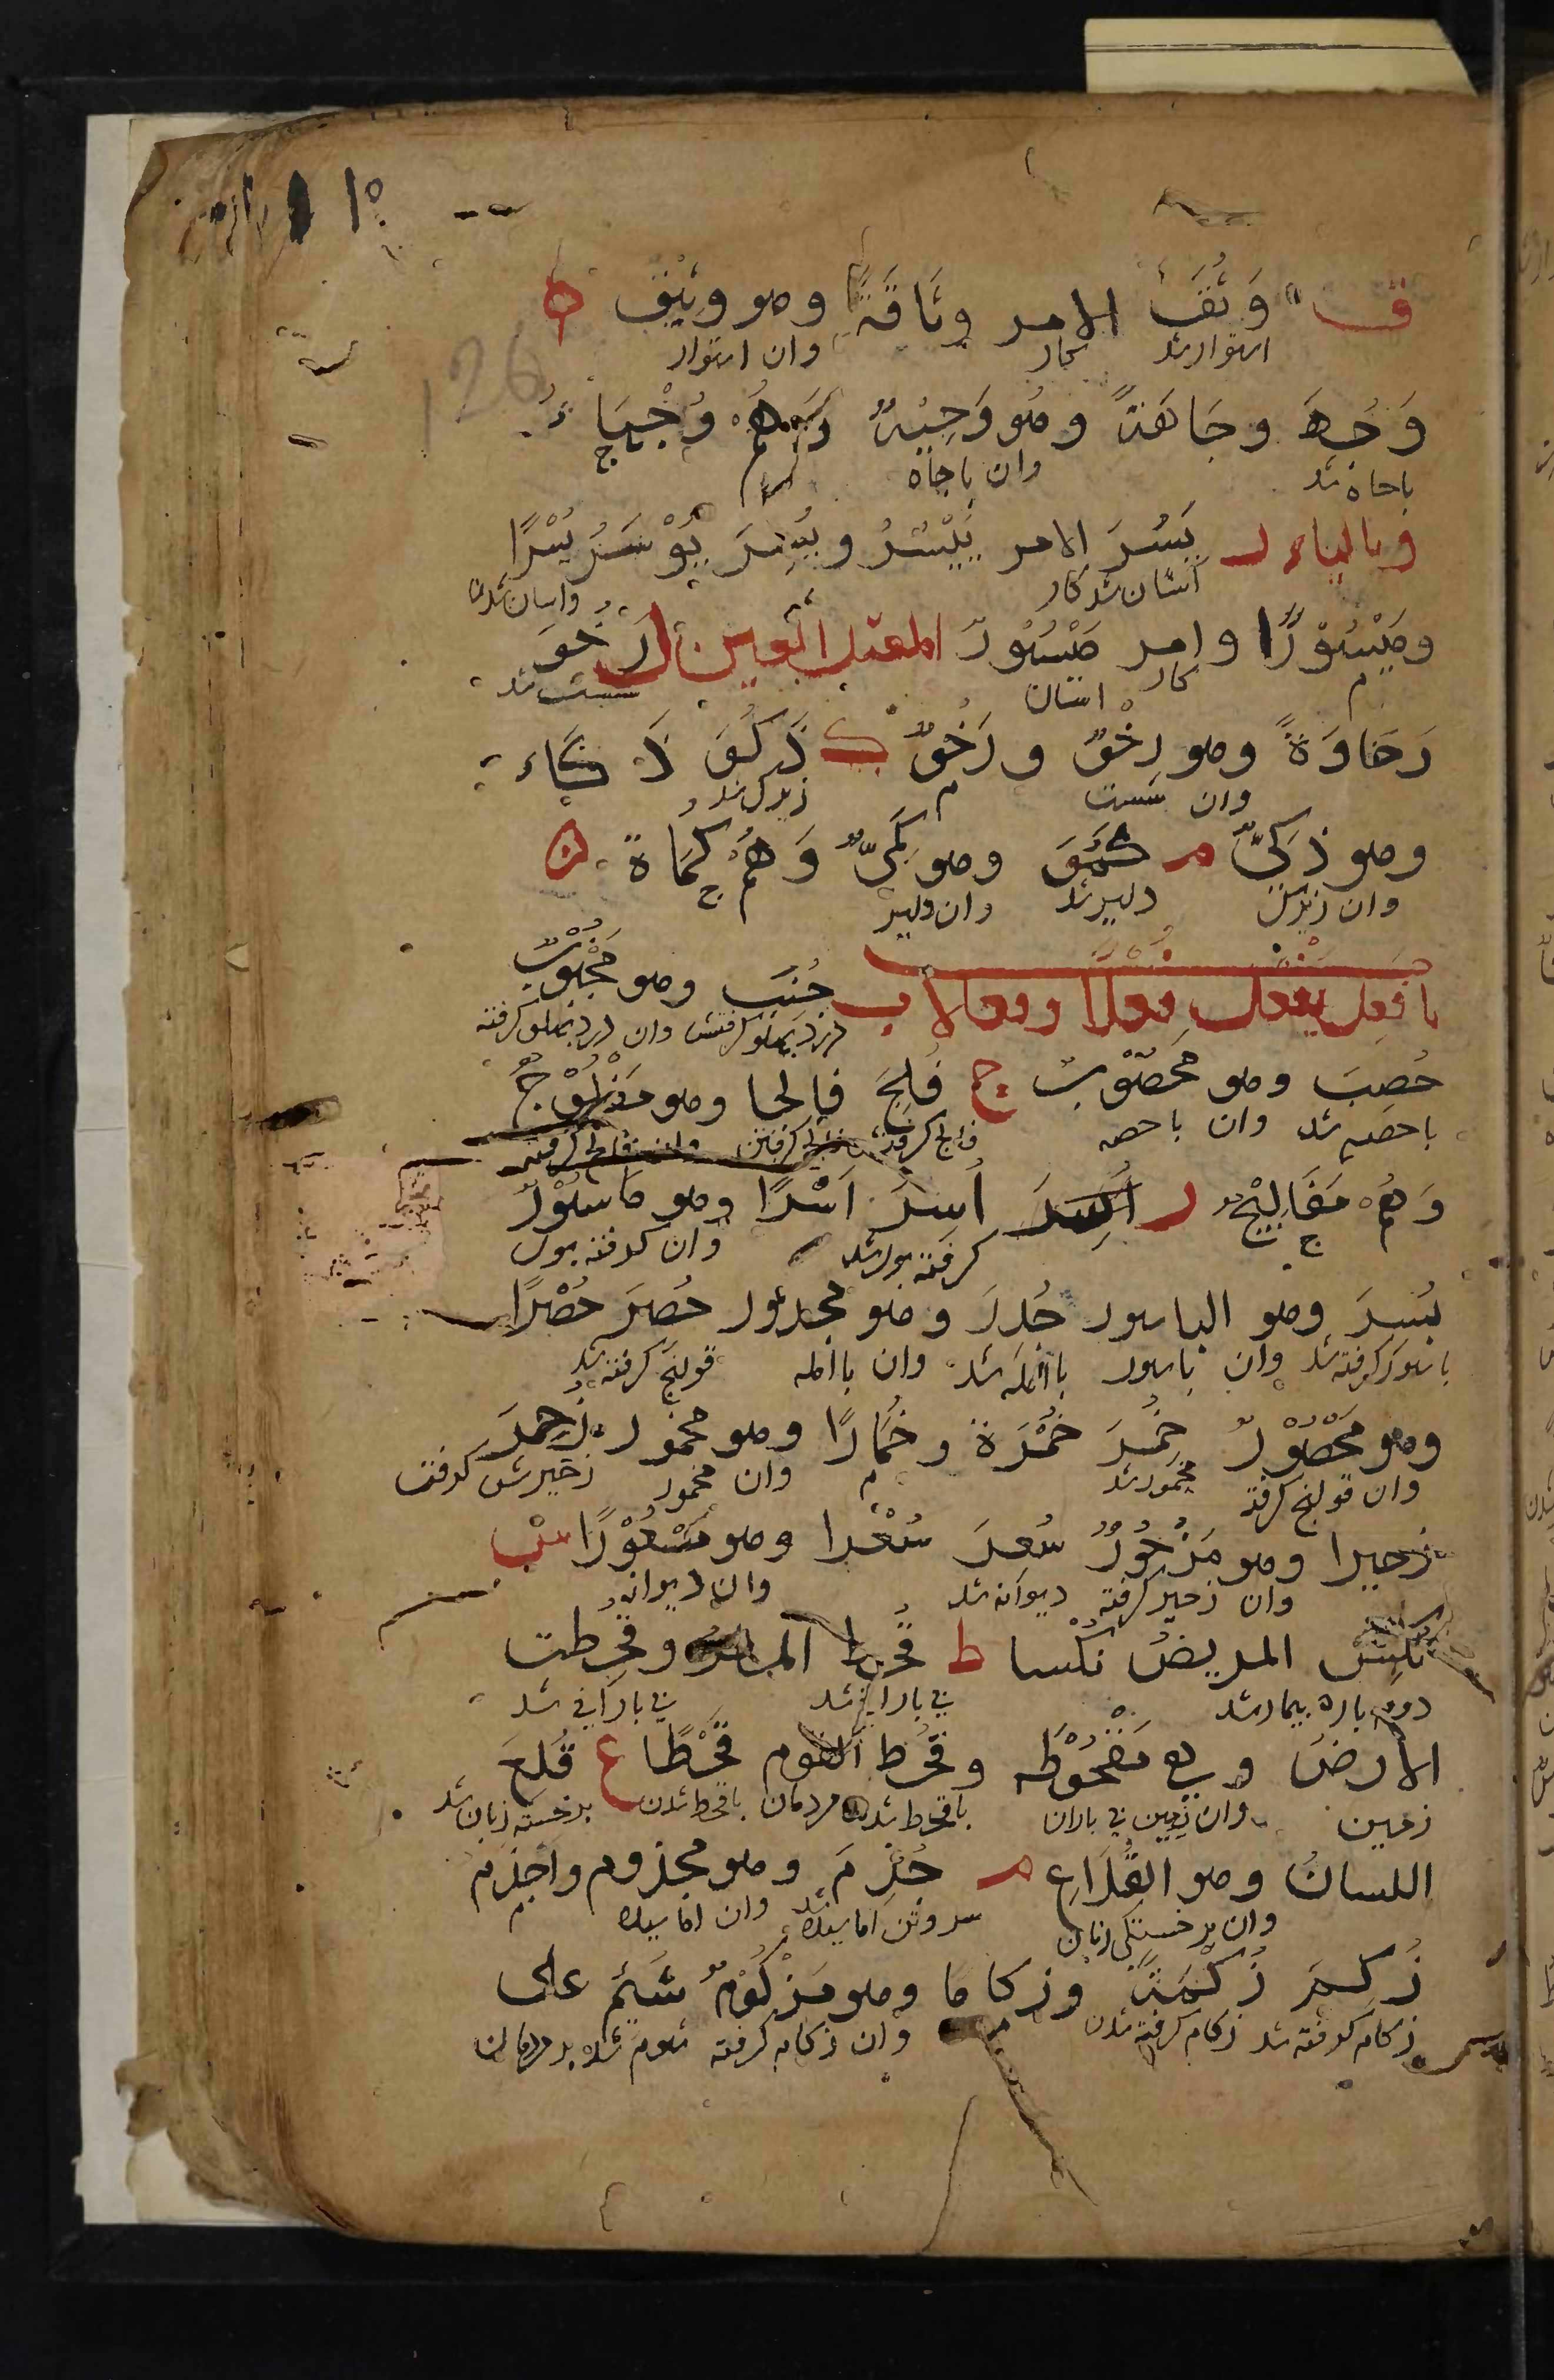 ق وَثُقَ الامر وِثَاقَةً وهو وثيق ه
استوار شد کار وان استوار
وَجُهَ وجَاهَةً وهو وَجِيْهٌ وَهُمْ وُجَهَاءُ
باجاه شد وان باجاه
وبالياء ر يَسُرَ الامر يَيْسُرُ ويُسِرَ يُوْسَرُ يُسْرًا
آسان شد کار واسان شدن
ومَيْسُوْرًا وامر مَيْسُوْرٌ المعتل رَخُوَ
م کار اسان سست شد
رَخَاوَةً وهو رِخْوٌ ورَخْوٌ ك ذَكُوَ ذَكَاء
وان سست م زیرک شد
وهو ذَكِيٌّ م كَمُوَ وهو كَمِيٌّ وَهُمْ كُمَاةٌ ن
وان زیرک دلیر شد وان دلیر
يُفْعَل فَعْلًا وفعالا ب جُنِبَ وهو مَجْنُوْبٌ
درد پهلو گرفتش وان درد پهلو گرفته
حُصِبَ وهو مَحْصُوْبٌ ج فُلِجَ فالجا وهو مَفْلُوْجٌ
باحصبه شد وان باحصبه فالج گرفته
وَهُمْ مَفَالِيْجُ ر أُسِرَ أَسْرًا وهو مَاسُوْرٌ
گرفته بول شد وان گرفته بول
بُسِرَ وهو الباسور جُدِرَ وهو مجدور حُصِرَ حُصْرًا
باسور گرفته شد وان باسور باآبله شد وان باآبله قولنج گرفته شد
وهو مَحْصُوْرٌ خُمِرَ خُمْرَة وخُمَارًا وهو مخمور زُحِرَ
وان قولنج گرفته مخمور شد م وان مخمور زحیرش گرفت
زحيرا وهو مَزْحُوْرٌ سُعِرَ سُعْرا وهو مَسْعُوْرًا س
وان زحیر گرفته دیوانه شد وان دیوانه
نُكِسَ المريضُ نُكْسا ط قُحِط وقُحِطت
دوم باره بیمار شد بی بارانی شد بی بارانی شد
الأرضُ وهي مَقْحُوْطَه وقُحِط القوم قَحْطًا ع قُلِعَ
زمین وان زمین بی باران باقحط شدند مردمان باقحط شدن برخسته زبان شد
اللسانُ وهو القُلَاع م جُذِمَ وهو مجذوم واَجْذَم
وان برخستگی زبان وان
زُكِمَ زُكْمَةً وزكاما وهو مَزْكُوْمٌ شُئِمَ على
زکام گرفته شد زکام گرفته شدن وان زکام گرفته شوم شد بر مردمان